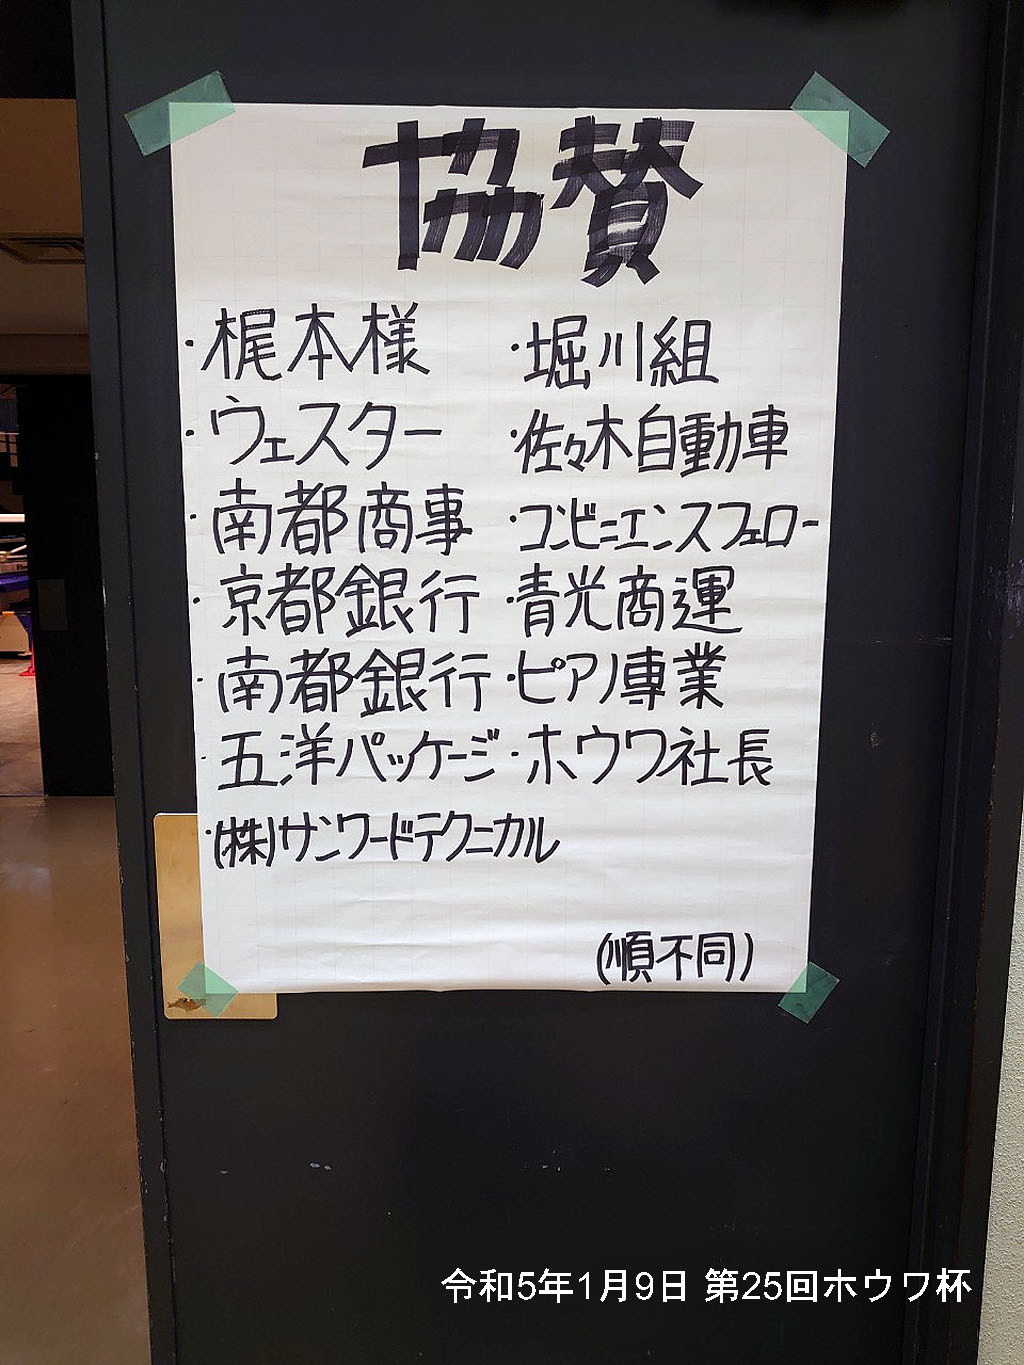 協賛
・梶本様
・ウェスター
・南都商事
・京都銀行
・南都銀行
・五洋パッケージ
・(株)サンワードテクニカル
・堀川組
・佐々木自動車
・コンビニエンスフェロー
・青光商運
・ピアノ専業
・ホウワ社長
(順不同)
令和5年1月9日 第25回ホウワ杯